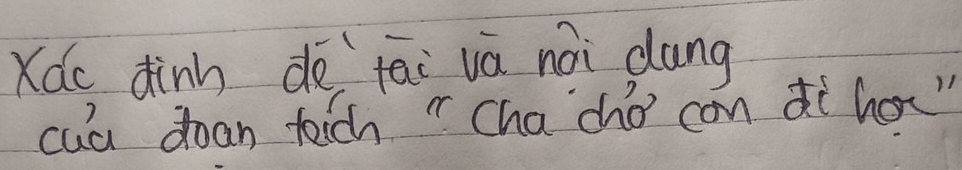 Xác định đề tài và nội dung
của đoạn trích "Cha chở con đi học"